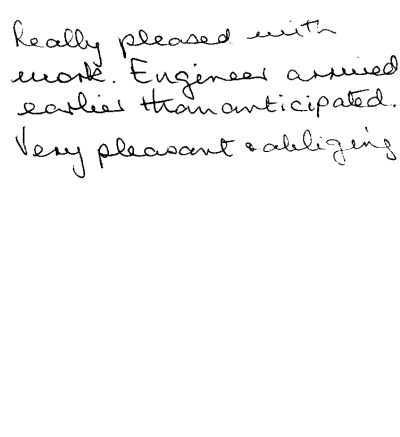 Really pleased with
work. Engineer arrived
earlier than anticipated.
Very pleasant & obliging